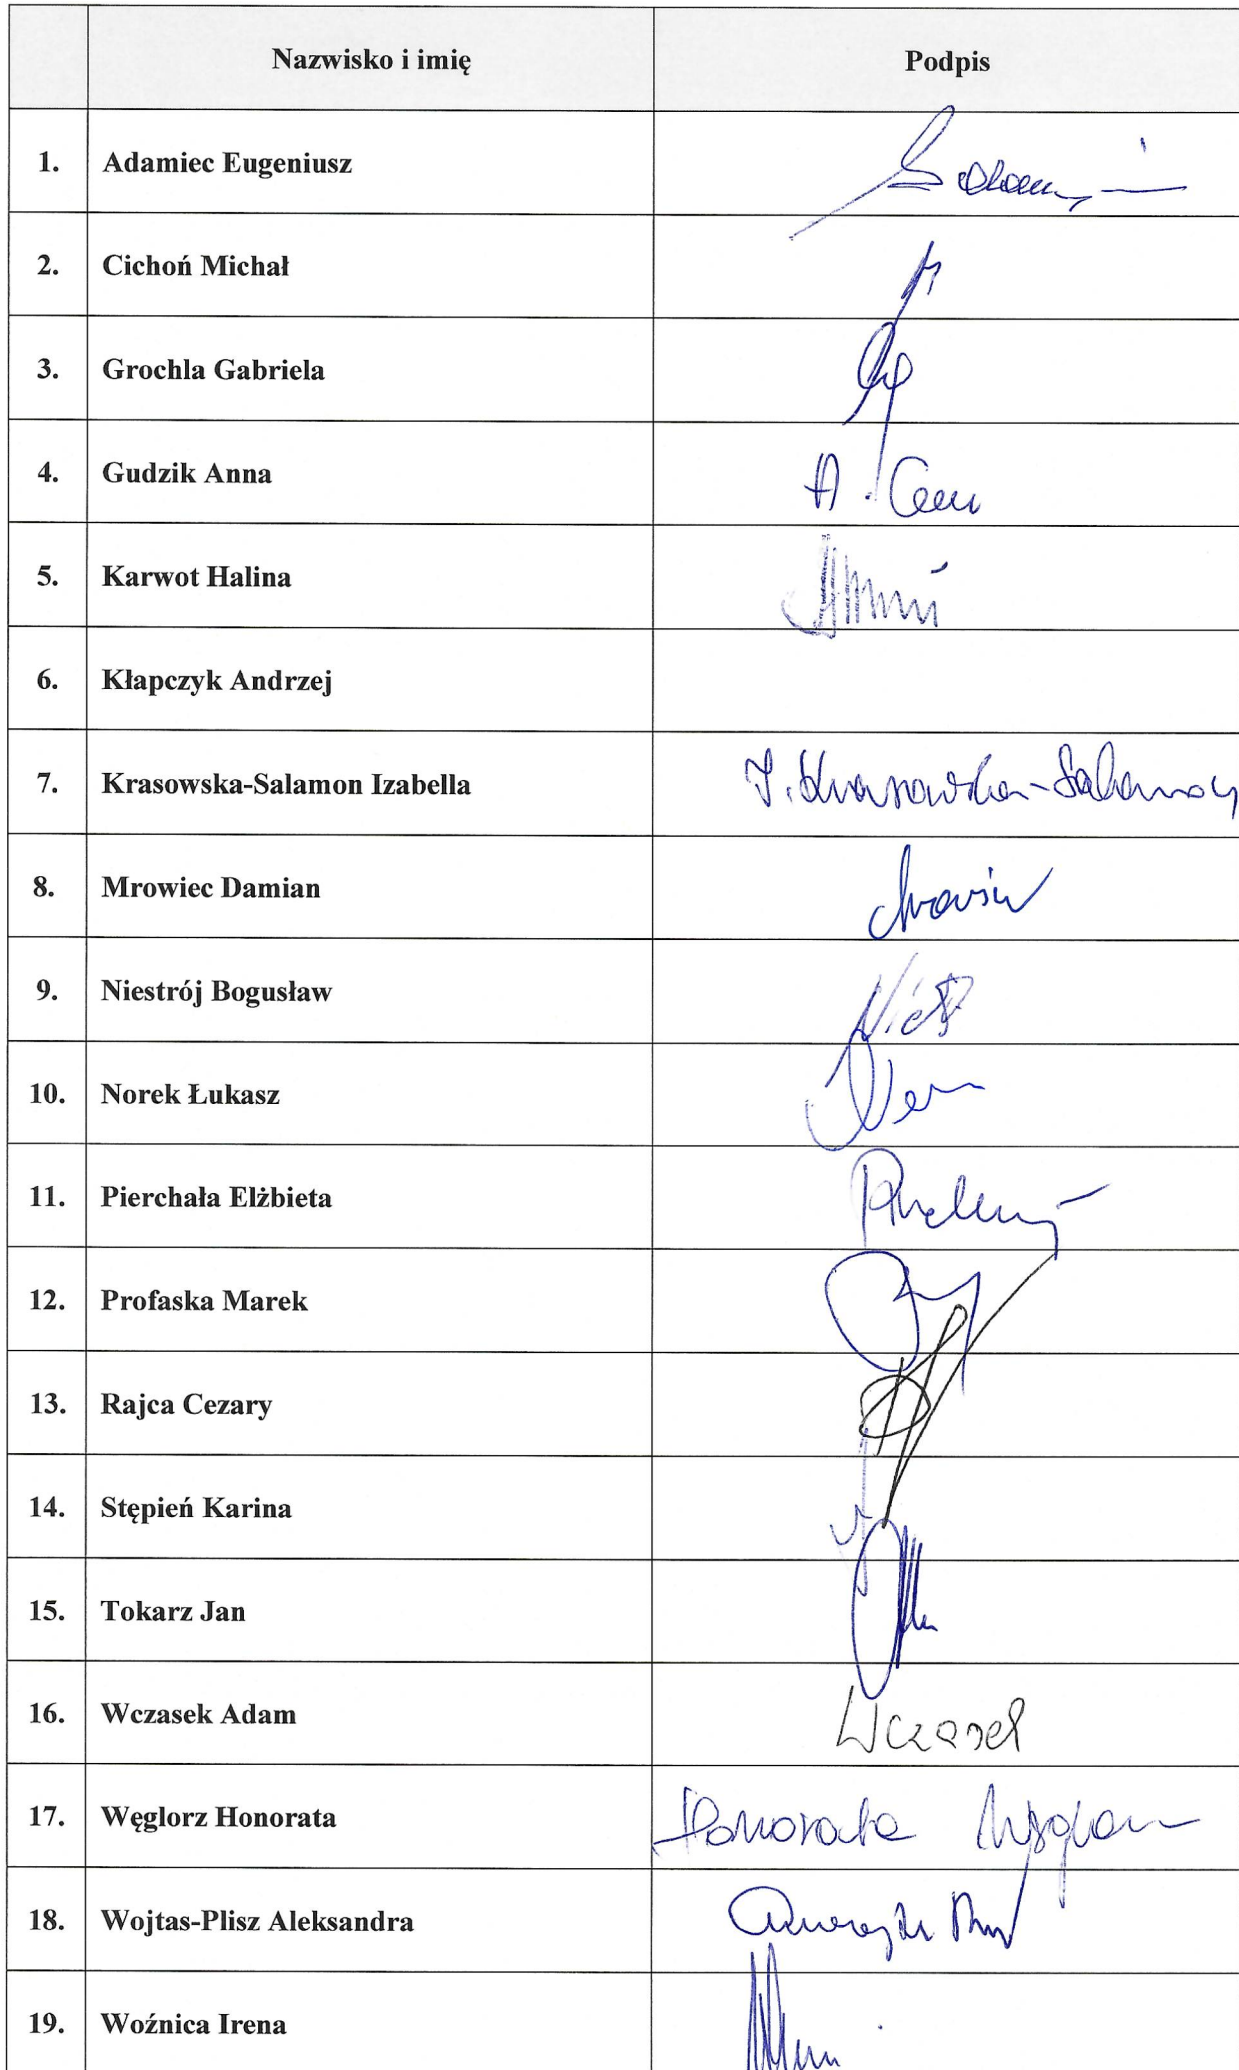 Nazwisko i imię Podpis
1. Adamiec Eugeniusz
2. Cichoń Michał
3. Grochla Gabriela
4. Gudzik Anna
5. Karwot Halina
6. Kłapczyk Andrzej
7. Krasowska-Salamon Izabella I. Krasowska-Salamon
8. Mrowiec Damian
9. Niestrój Bogusław
10. Norek Łukasz
11. Pierchała Elżbieta
12. Profaska Marek
13. Rajca Cezary
14. Stępień Karina
15. Tokarz Jan
16. Wczasek Adam Wczasek
17. Węglorz Honorata Honorata
18. Wojtas-Plisz Aleksandra
19. Woźnica Irena